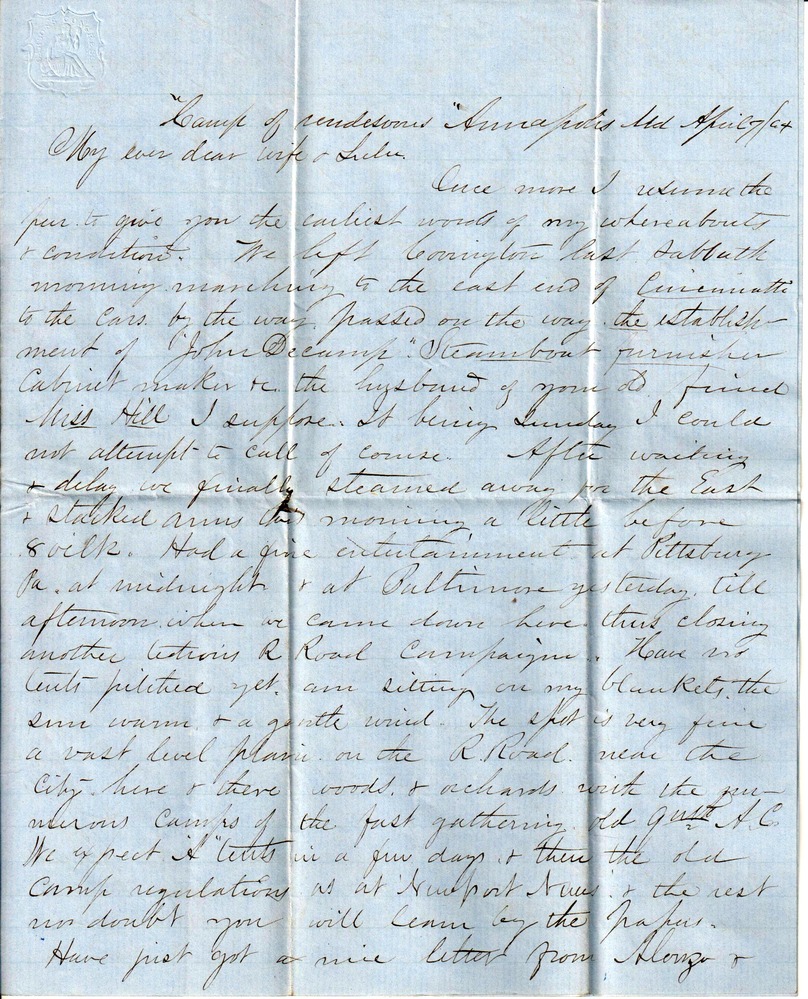 "Camp of rendesvous" Annapolis Md April 7/64
My ever dear wife & Lulu.
Once more I resume the
pen to give you the earliest words of my whereabouts
& condition. We left Covington last sabbath
morning marching to the east end of Cincinnatti
to the Cars. by the way passed on the way the establish-
ment of "John Decamp" Steamboat furnisher
Cabinet maker &c the husband of your old friend
Miss Hill I suppose. It being Sunday I could
not attempt to call of course. After waiting
& delay we finally steamed away for the East
& stacked arms this morning a little before
8 oclk. Had a fine entertainment at Pittsburg
Pa. at midnight & at Baltimore yesterday. till
afternoon when we came down here thus closing
another tedious R Road Campaign. Have no
tents pitched yet. am sitting on my blankets. the
sun warm & a gentle wind. The spot is very fine
a vast level plain on the R. Road. near the
City. here & there woods. & orchards with the nu-
merous camps of the fast gathering old 9th A.C.
We expect "A" tents in a few days & then the old
Camp regulations as at Newport News. & the rest
no doubt you will learn by the papers.
Have just got a nice letter from Alonzo &